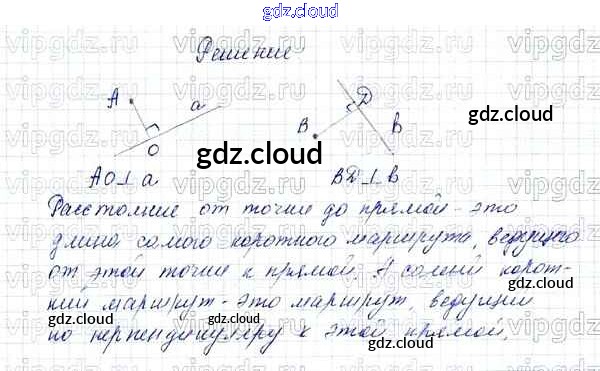 gdz.cloud
Решение
A a
O
AO⊥a
D
B b
BD⊥b
gdz.cloud
gdz.cloud
gdz.cloud
Расстояние от точки до прямой - это
длина самого короткого маршрута, ведущего
от этой точки к прямой. А самый корот-
кий маршрут - это маршрут, ведущий
по перпендикуляру к этой прямой.
gdz.cloud
gdz.cloud
gdz.cloud
gdz.cloud
gdz.cloud
vipgdz.ru